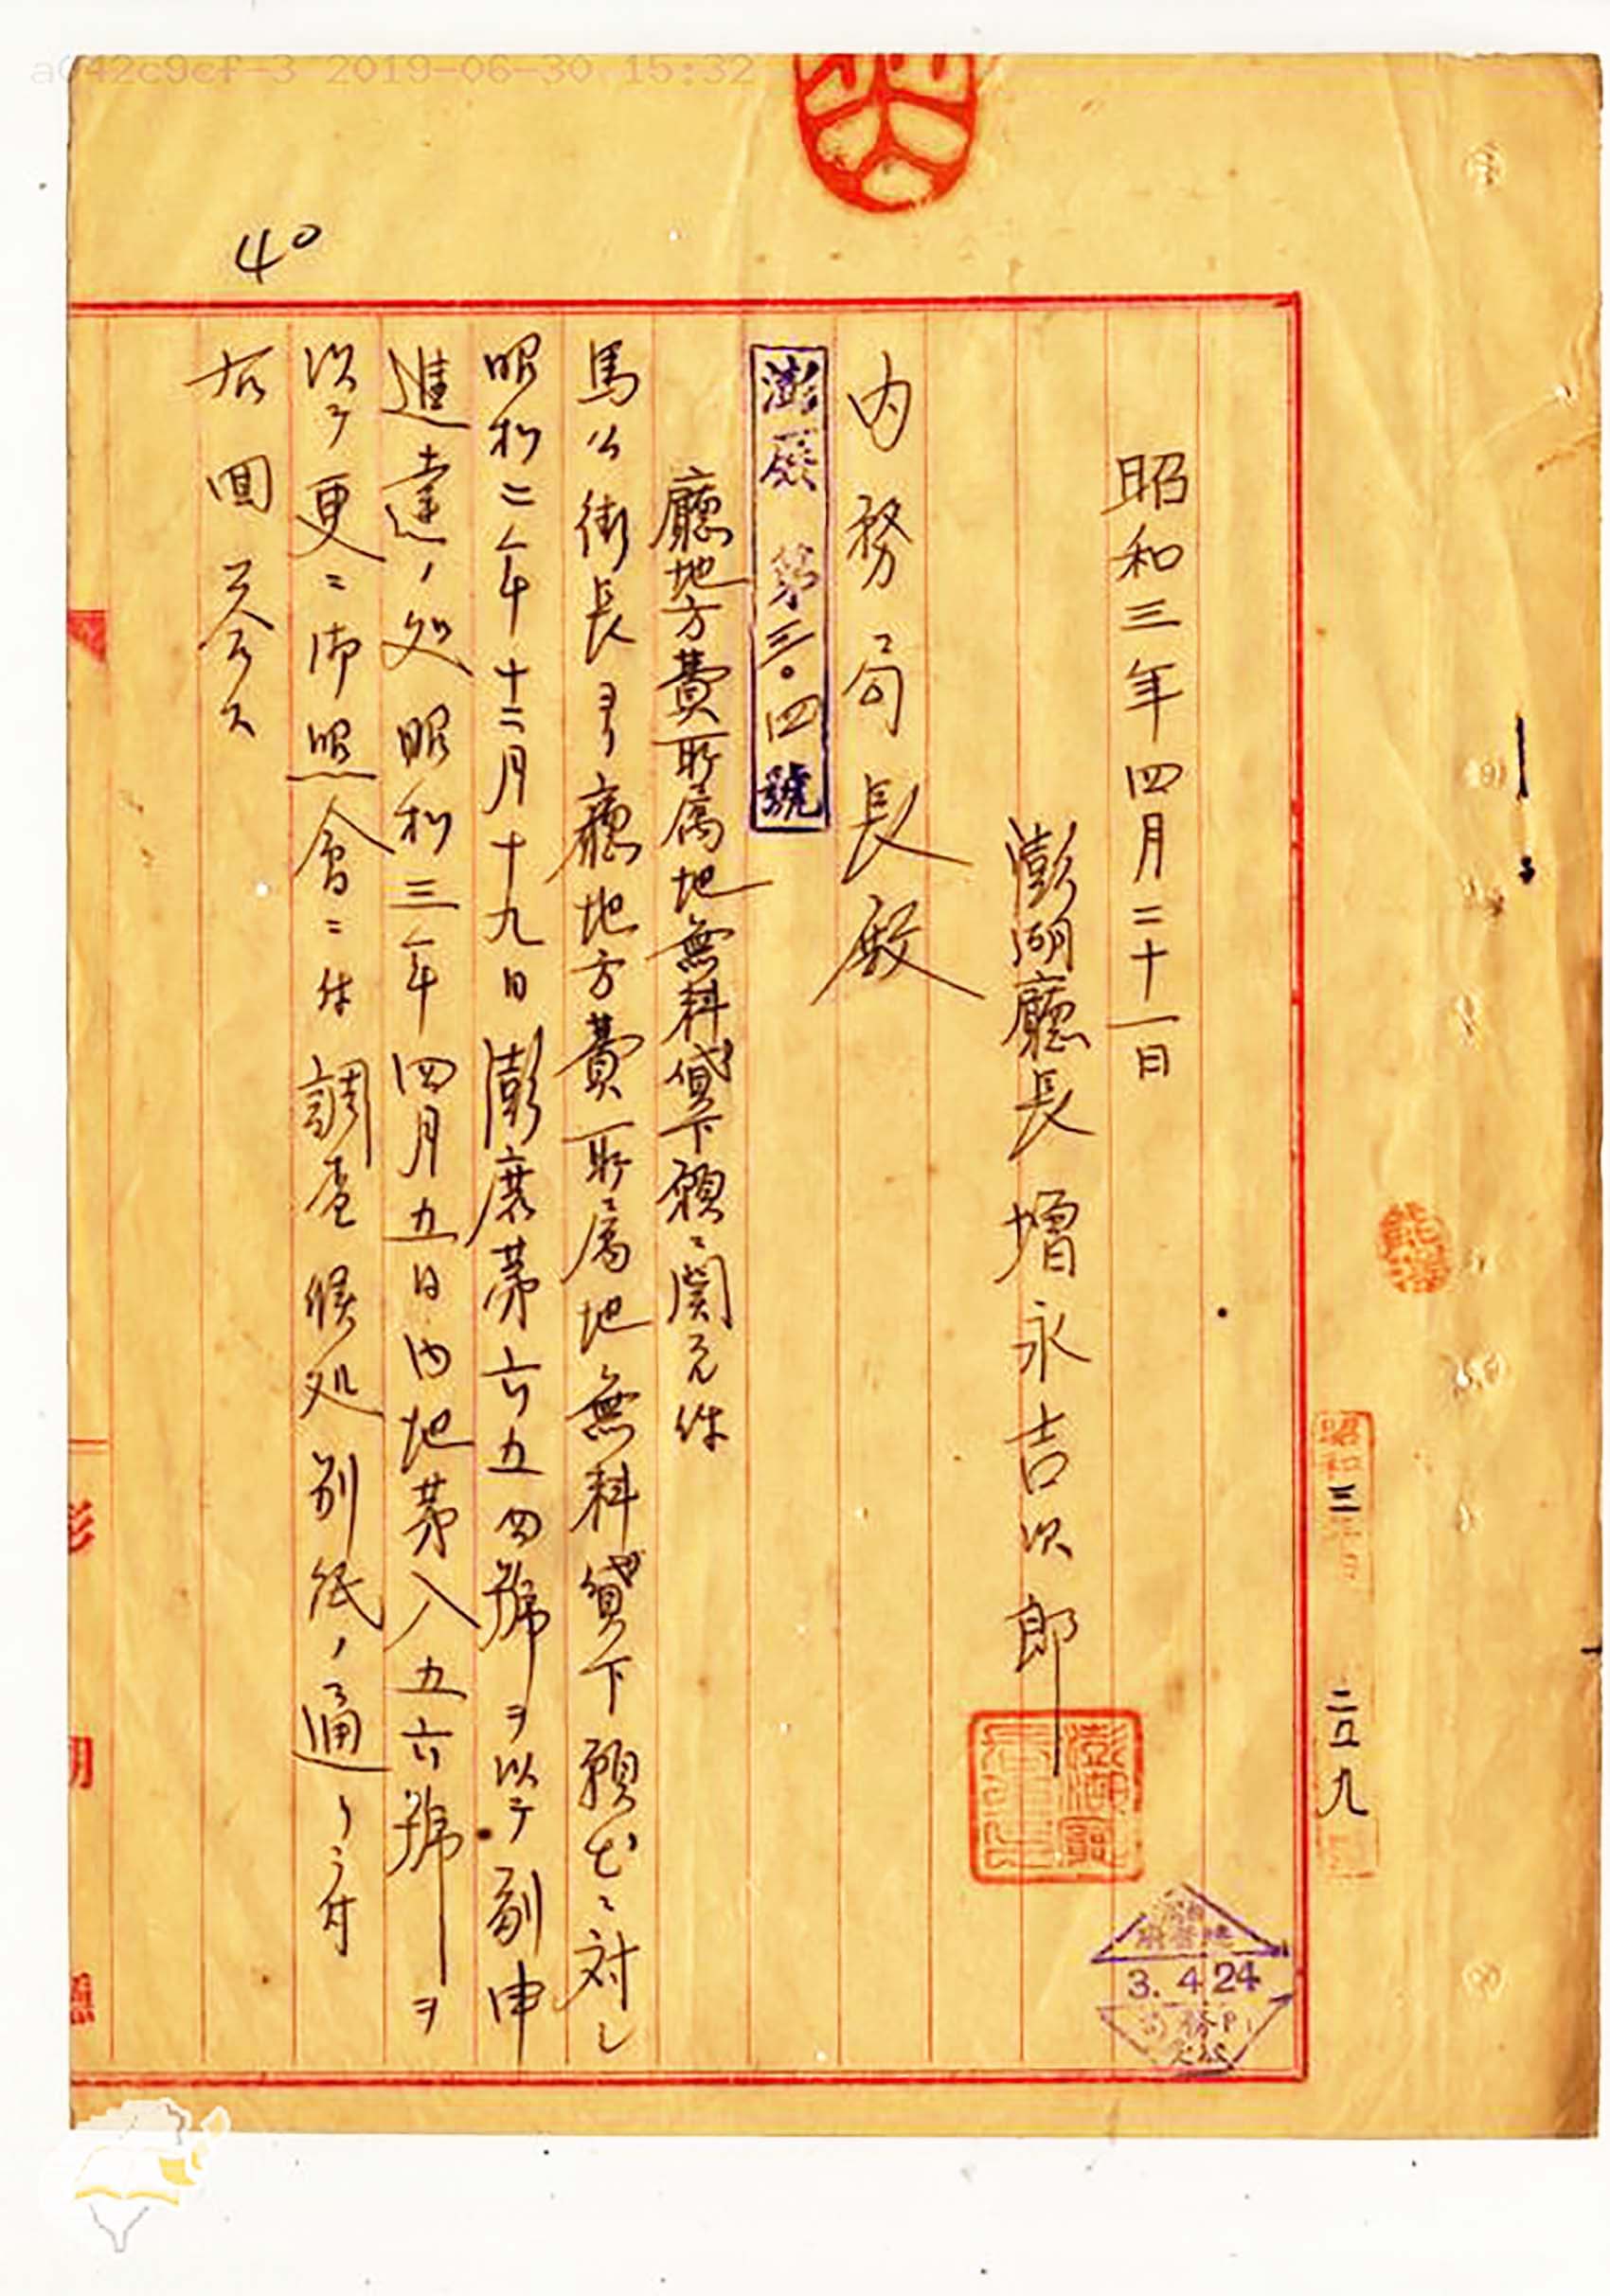 a042c9cf-3 2019-06-30 15:32
40
昭和三年四月二十一日
澎湖廳長 增永吉次郎
内務局長殿
澎庶第三〇四號
廳地方費所属地無料貸下願ニ関スル件
馬公街長ヨリ廳地方費所属地無料貸下願出ニ対シ
昭和二年十二月十九日澎庶第六五四號ヲ以テ副申
進達ノ処昭和三年四月五日内地第八五六號ヲ
以テ更ニ御照會ニ付調査候処別紙ノ通リニ付
右回答ス
昭和三年 月
二五九
3.4.24